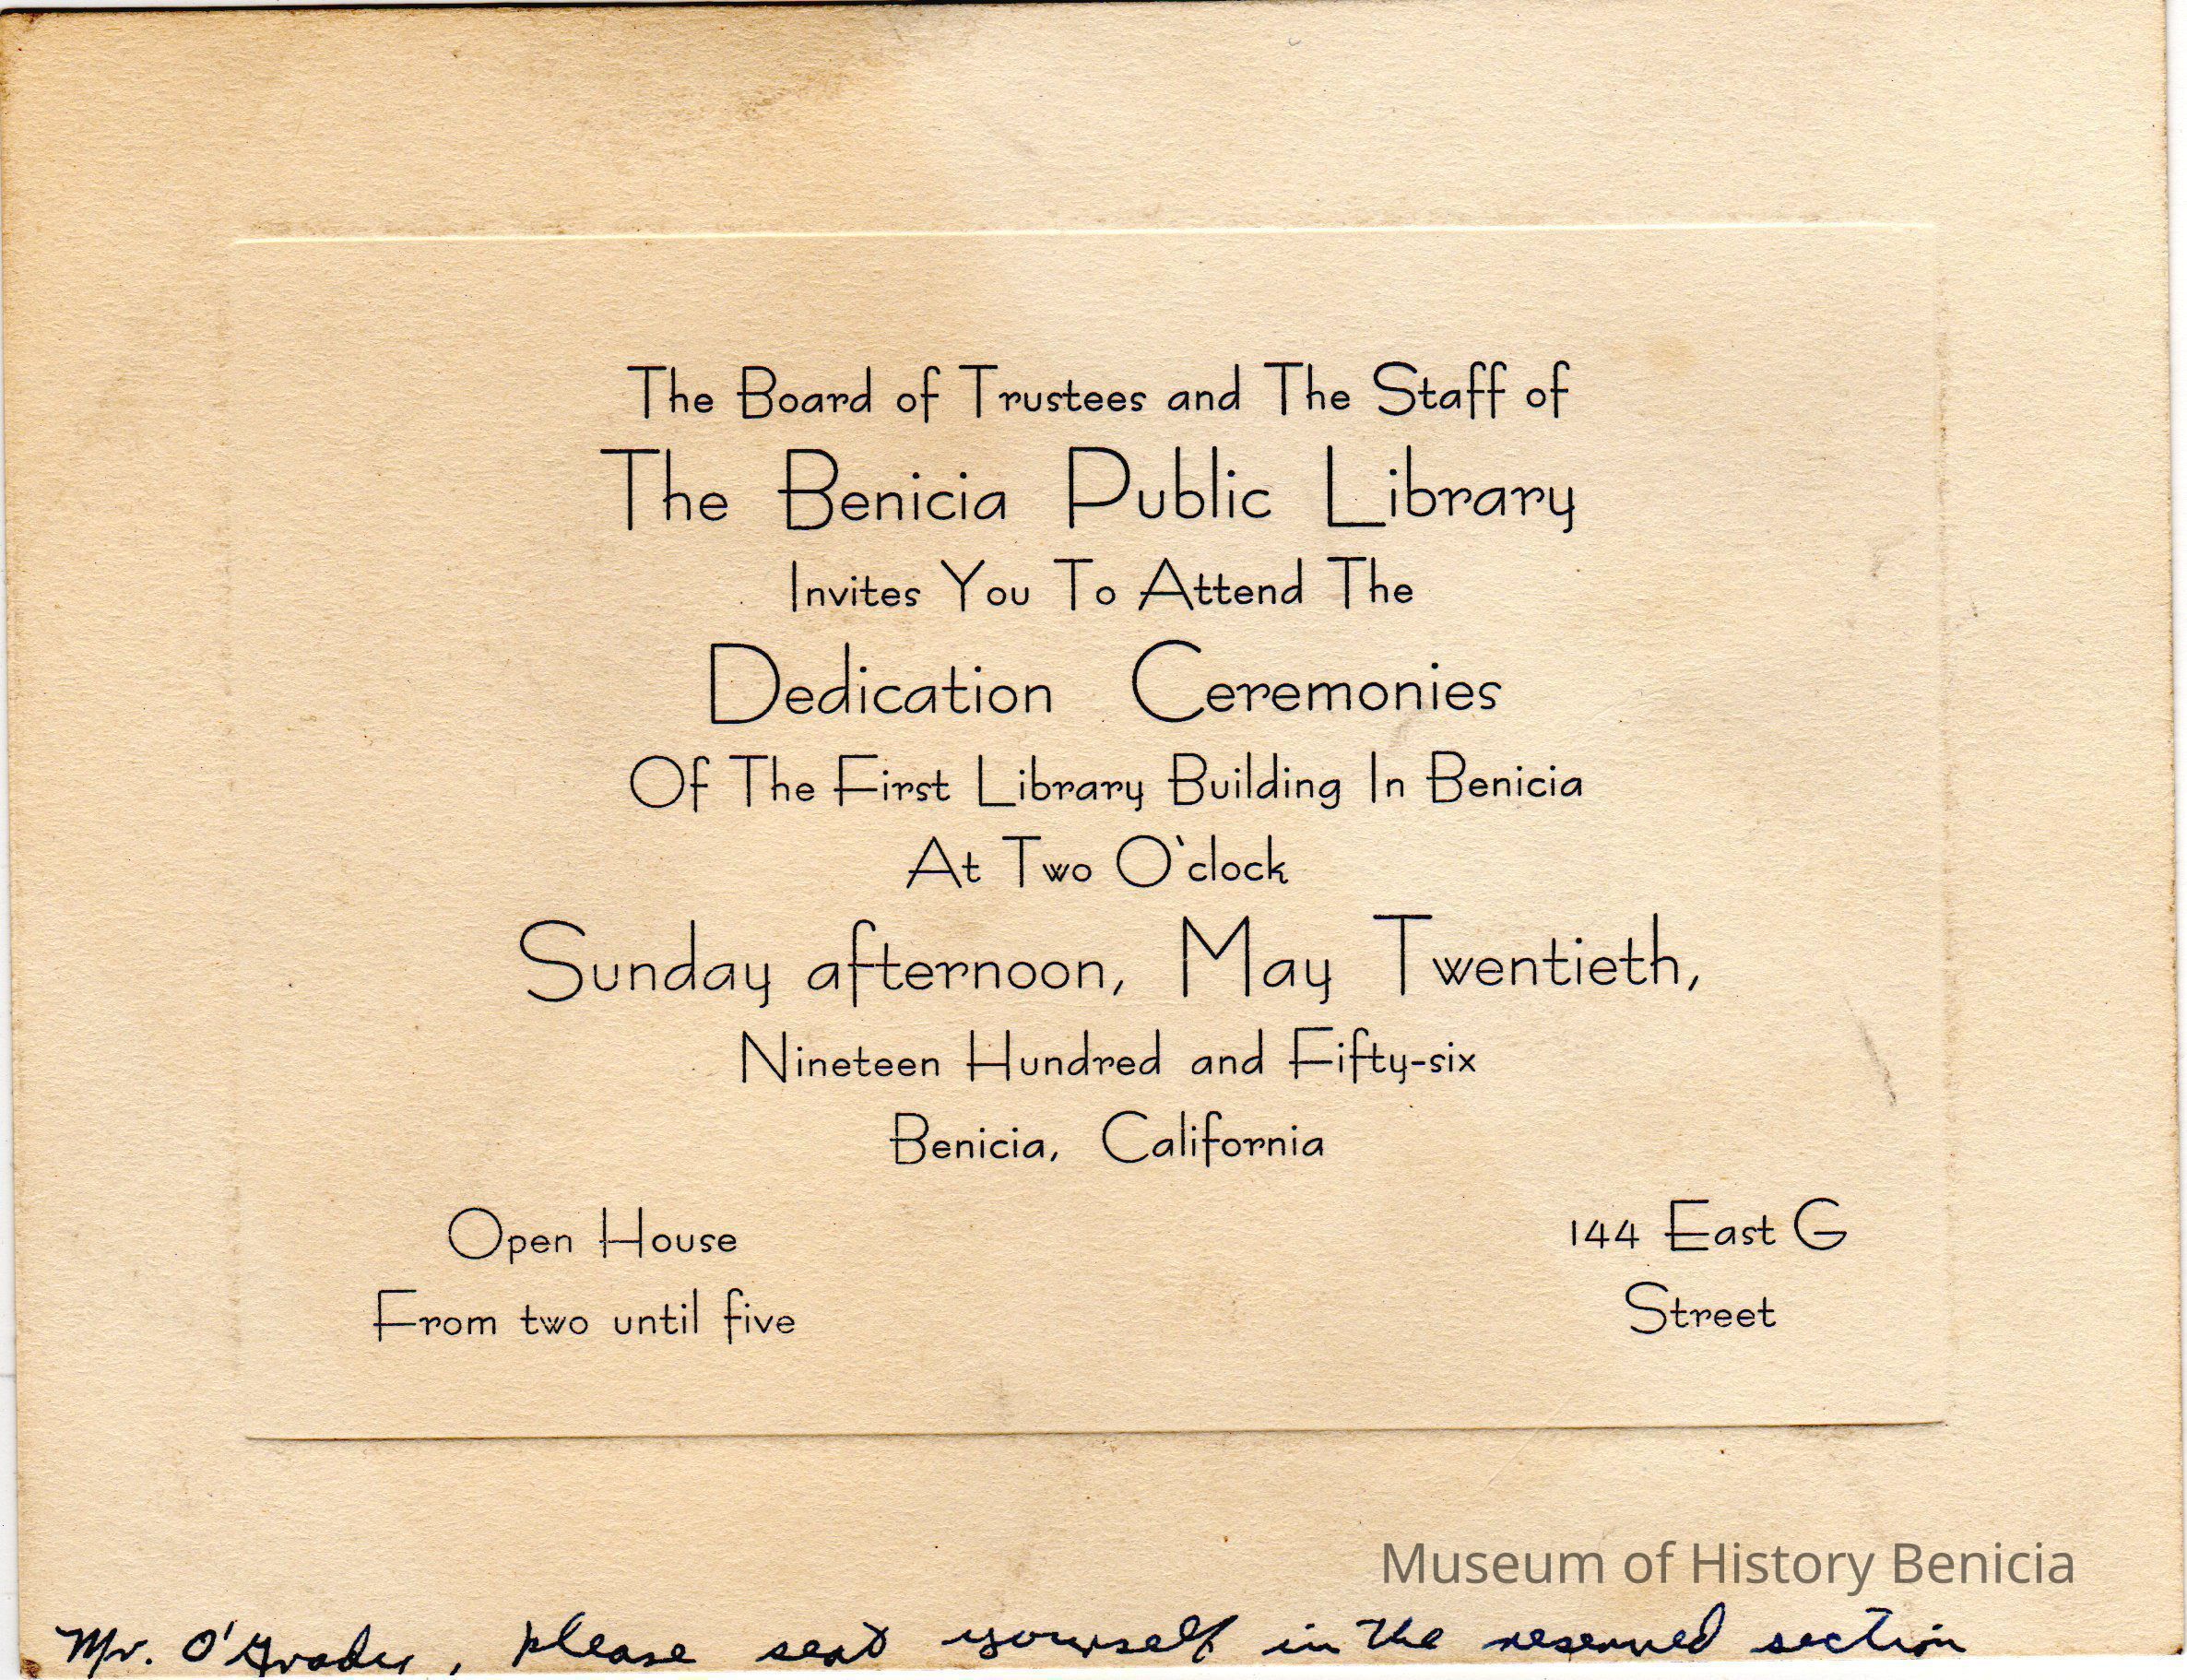 The Board of Trustees and The Staff of
The Benicia Public Library
Invites You To Attend The
Dedication Ceremonies
Of The First Library Building In Benicia
At Two O'clock
Sunday afternoon, May Twentieth,
Nineteen Hundred and Fifty-six
Benicia, California
Open House
From two until five
144 East G
Street
Museum of History Benicia
Mr. O'Grady, please seat yourself in the reserved section